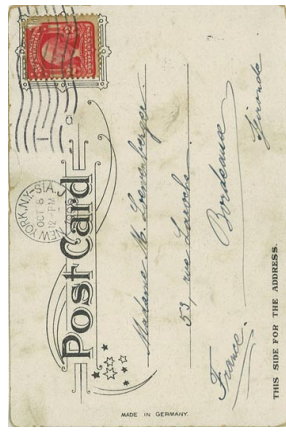 NEW YORK, N.Y. STA. J
OCT 6
12 - PM
Post Card
Madame M.
53, rue Laroche
Bordeaux
Gironde
France.
THIS SIDE FOR THE ADDRESS.
MADE IN GERMANY.